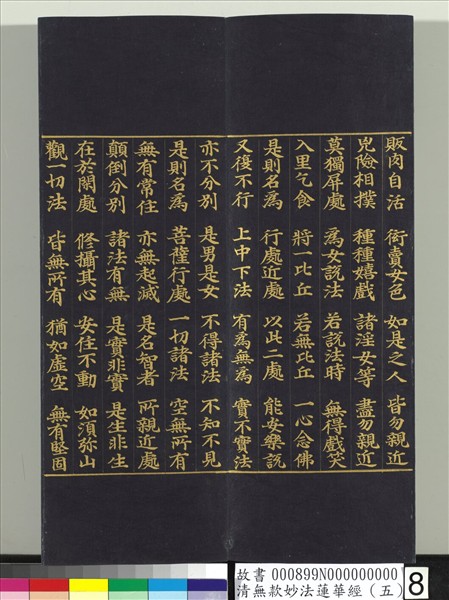 販肉自活 衒賣女色 如是之人 皆勿親近
兇險相撲 種種嬉戲 諸淫女等 盡勿親近
莫獨屏處 為女說法 若說法時 無得戲笑
入里乞食 將一比丘 若無比丘 一心念佛
是則名為 行處近處 以此二處 能安樂說
又復不行 上中下法 有為無為 實不實法
亦不分別 是男是女 不得諸法 不知不見
是則名為 菩薩行處 一切諸法 空無所有
無有常住 亦無起滅 是名智者 所親近處
顛倒分別 諸法有無 是實非實 是生非生
在於閑處 修攝其心 安住不動 如須彌山
觀一切法 皆無所有 猶如虛空 無有堅固
故書 000899N000000000
清無款妙法蓮華經（五）
8